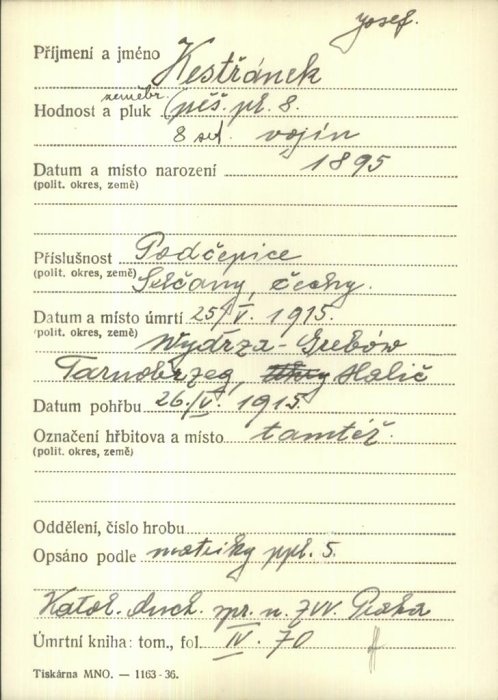 Josef.
Příjmení a jméno Kestřánek
zeměbr.
Hodnost a pluk (pěš. pl. 8.
8 set. vojín
Datum a místo narození 1895
(polit. okres, země)
Příslušnost Podčepice
(polit. okres, země) Selčany, Čechy.
Datum a místo úmrtí 25/V. 1915.
(polit. okres, země) Wydřza-Grebów
Tarnobrzeg, Halič
Datum pohřbu 26./V. 1915.
Označení hřbitova a místo tamtéž.
(polit. okres, země)
Oddělení, číslo hrobu
Opsáno podle matriky ppl. 5.
Katol. duch. spr. u. ZVV. Praha
Úmrtní kniha: tom., fol. IV. 70
Tiskárna MNO. — 1163-36.